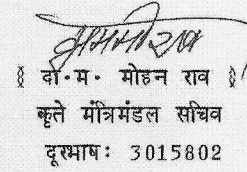 ( वी॰ म॰ मोहन राव )
कृते मंत्रिमंडल सचिव
दूरभाषः 3015802